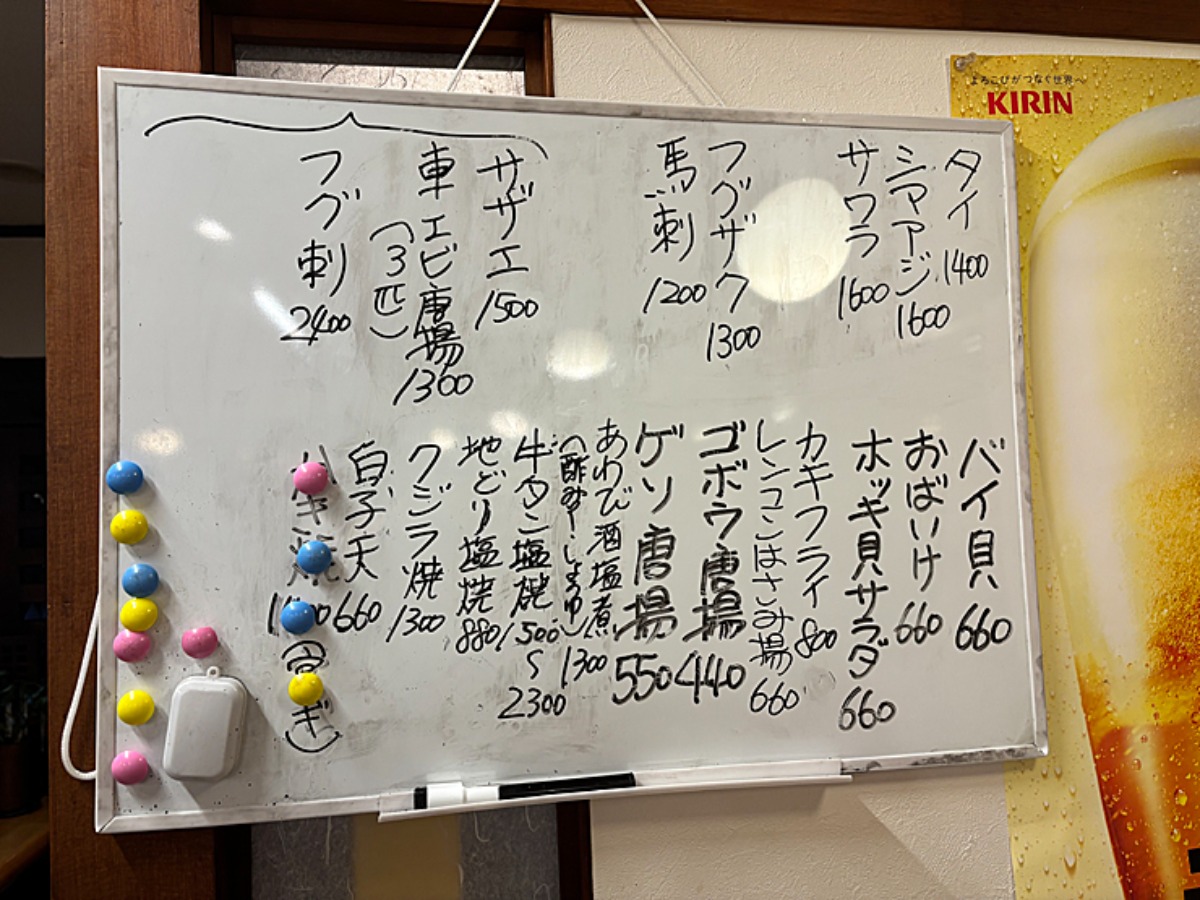 タイ 1400
シマアジ 1600
サワラ 1600
フグザク 1300
馬刺 1200
サザエ 1500
車エビ唐揚 1300
(3匹)
フグ刺 2400
バイ貝 660
おばいけ 660
ホッキ貝サラダ 660
カキフライ 800
レンコンはさみ揚 660
ゴボウ唐揚 440
ゲソ唐揚 550
あわび酒塩煮 1300
牛タン塩焼 1500〜2300
地どり塩焼 880
クジラ焼 1300
白子天 660
よろこびがつなぐ世界へ
KIRIN